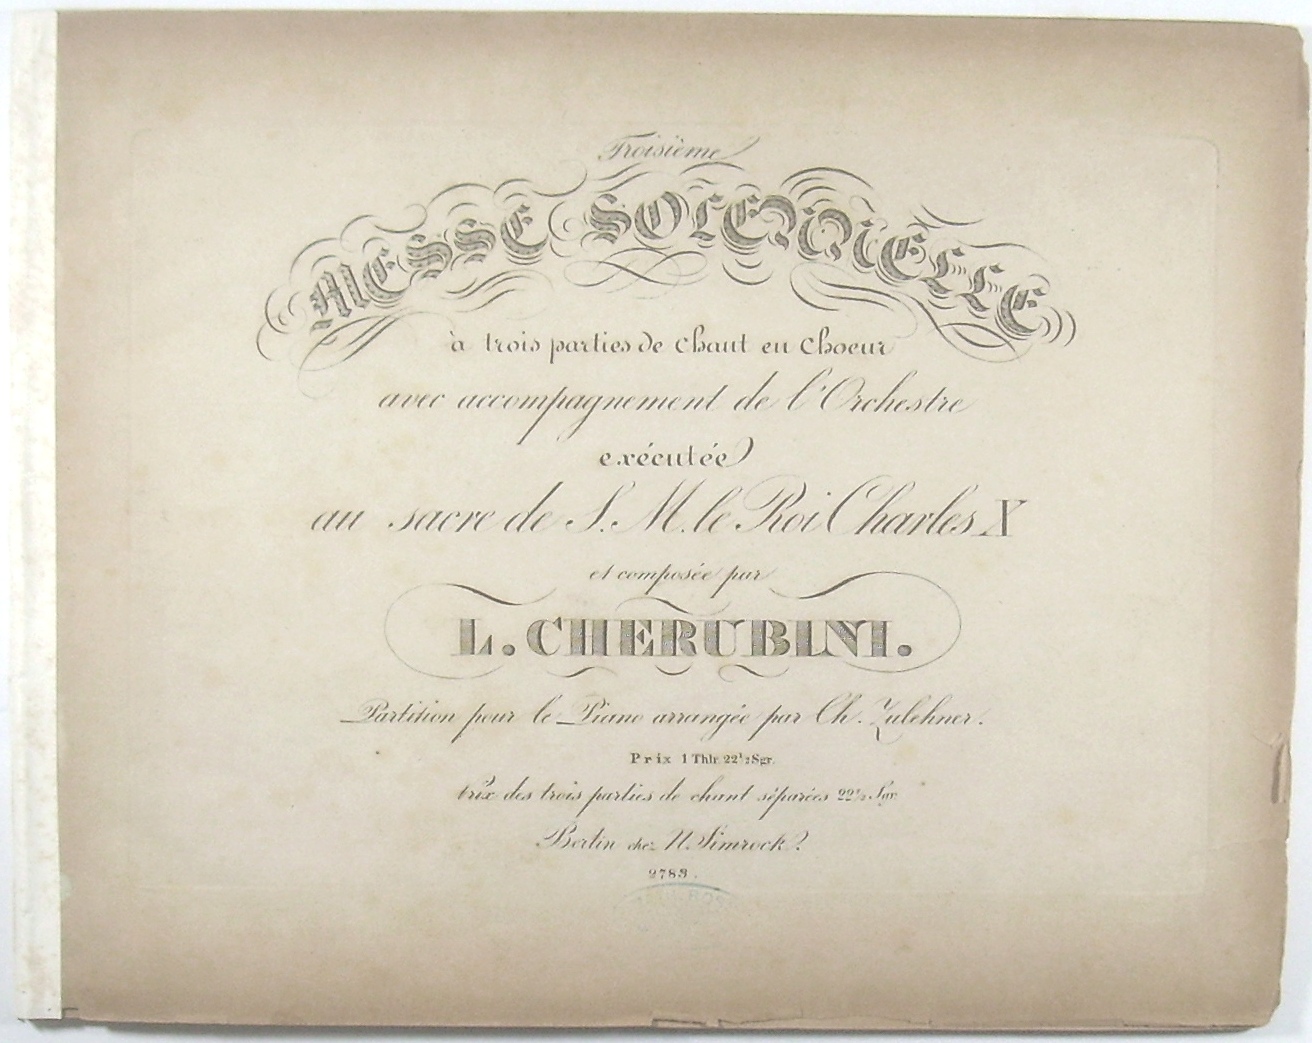 Troisième
MESSE SOLENNELLE
à trois parties de Chant en Choeur
avec accompagnement de l'Orchestre
exécutée
au sacre de S. M. le Roi Charles X
et composée par
L. CHERUBINI.
Partition pour le Piano arrangée par Ch. Zulehner.
Prix 1 Thlr. 22½ Sgr.
Prix des trois parties de chant séparées 22½ Sgr.
Berlin chez N. Simrock.
2783.